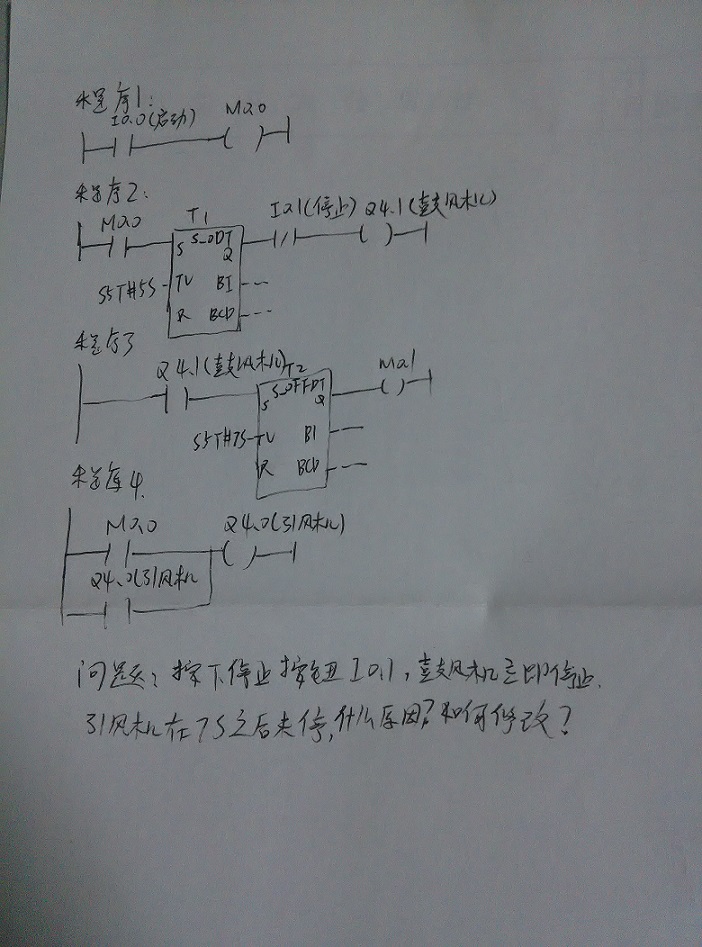 程序1:
I0.0(启动) M0.0
程序2:
M0.0 T1 I0.1(停止) Q4.1(鼓风机)
S S_ODT Q
S5T#5S TV BI
R BCD
程序3
Q4.1(鼓风机) T2 M0.1
S S_OFFDT Q
S5T#7S TV BI
R BCD
程序4.
M0.0 Q4.0(引风机)
Q4.0(引风机
问题: 按下停止按钮I0.1, 鼓风机立即停止.
引风机在7S之后未停,什么原因?如何修改?